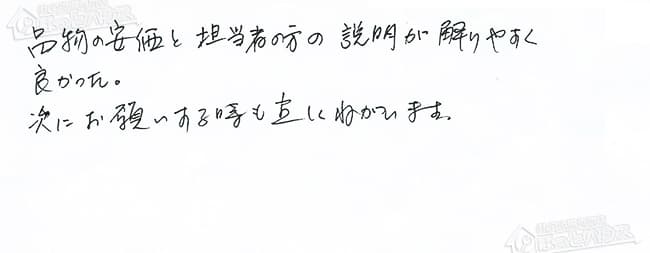 品物の安価と担当者の方の説明が解りやすく
良かった。
次にお願いする時も宜しくねがいます。